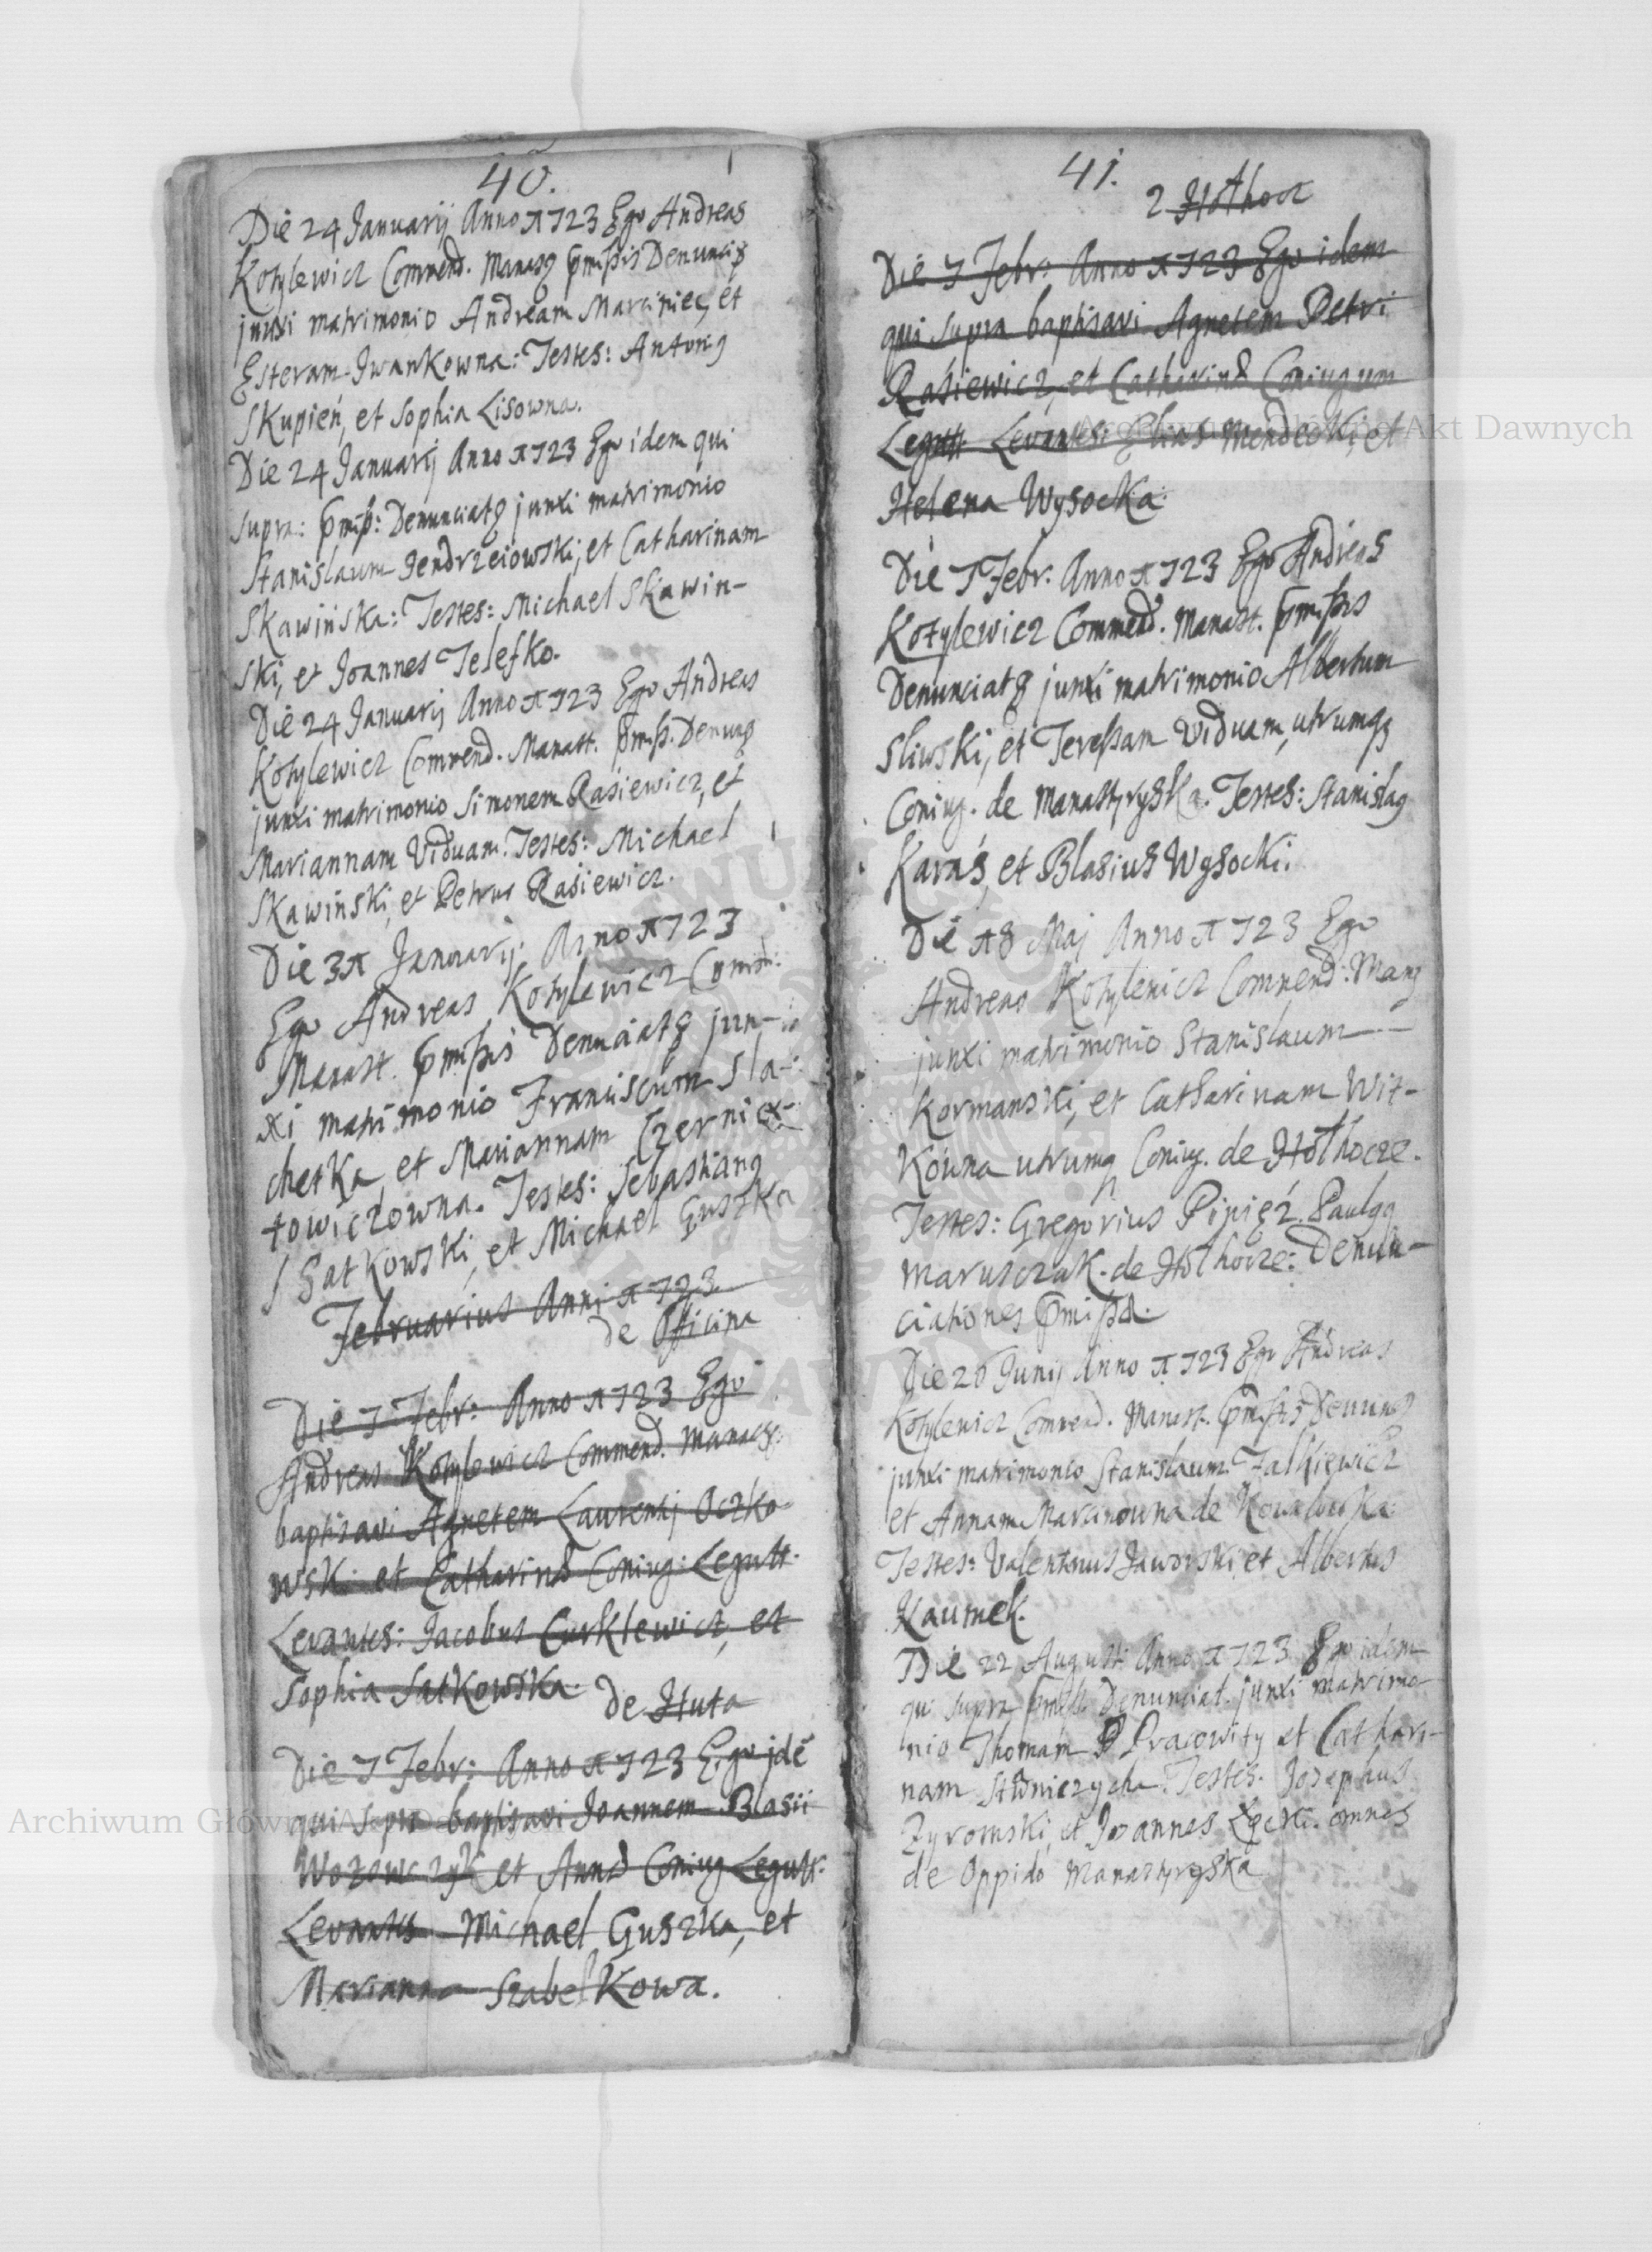 40.
Die 24 Januarij Anno 1723 Ego Andreas
Kotylewicz Commend. Manasq pmissis Denunciq
junxi matrimonio Andream Marciniec, et
Esteram Iwankowna: Testes: Antoniq
Skupień, et Sophia Lisowna.
Die 24 Januarij Anno 1723 Ego idem qui
supra: pmiss: Denunciatq junxi matrimonio
Stanislaum Jendrzeiowski, et Catharinam
Skawińska: Testes: Michael Skawin-
ski, et Joannes Telefko.
Die 24 Januarij Anno 1723 Ego Andreas
Kotylewicz Commend. Manast. pmiss. Denunq
junxi matrimonio Simonem Rasiewicz, et
Mariannam Viduam. Testes: Michael
Skawiński, et Petrus Rasiewicz.
Die 31 Januarij Anno 1723
Ego Andreas Kotylewicz Comd:
Manast. pmissis Denunciatq jun-
xi matrimonio Franciscum Sla-
chetka, et Mariannam Czernie-
towiczowna. Testes: Sebastianq
Satkowski, et Michael Guszka
Februarius Anni 1723
de Officina
Die 7 Febr: Anno 1723 Ego
Andreas Kotylewicz Commend. Manast:
baptisavi Agnetem Laurentij Oczko-
wski et Catharina Coniug: Legitt.
Levantes: Jacobus Curklewicz, et
Sophia Satkowska.
de Huta
Die 7 Febr: Anno 1723 Ego idē
qui supra baptisavi Joannem Blasii
Wozowczyk et Anna Coniug Legitt.
Levantes Michael Guszka, et
Marianna Szabelkowa.
41.
2 Hołhocz
Die 7 Febr: Anno 1723 Ego idem
qui supra baptisavi Agnetem Petri
Rasiewicz, et Catharina Coniugum
Legitt Levantes: Elias Mendecki, et
Helena Wysocka.
Die 7 Febr: Anno 1723 Ego Andreas
Kotylewicz Commend. Manast. pmissis
Denunciatq junxi matrimonio Albertum
Sliwski, et Teressam Viduam, utrumq
Coniug. de Manastyryska. Testes: Stanislaq
Karaś, et Blasius Wysocki.
Die 18 Maj Anno 1723 Ego
Andreas Kotylewicz Commend: Manq
junxi matrimonio Stanislaum
Kormanski, et Catharinam Wit-
kowna utrumq Coniug. de Hołhocze.
Testes: Gregorius Pipięź. Paulqq
Marusczak. de Hołhocze: Denun-
ciationes pmissa.
Die 20 Junij Anno 1723 Ego Andreas
Kotylewicz Commend. Manast. pmissis Denunq
junxi matrimonio Stanislaum Falkiewicz
et Annam Marcinowna de Kowalowka:
Testes: Valentinus Jaworski, et Albertus
Kaumek.
Die 22 Augusti Anno 1723 Ego idem
qui supra pmiss. Denunciat. junxi matrimo-
nio Thomam Pracowity et Cathari-
nam Testes. Josephus
Zyromski, et Joannes Łęcki. omnes
de Oppido Manastyryska
Archiwum Główne Akt Dawnych
Archiwum Główne Akt Dawnych